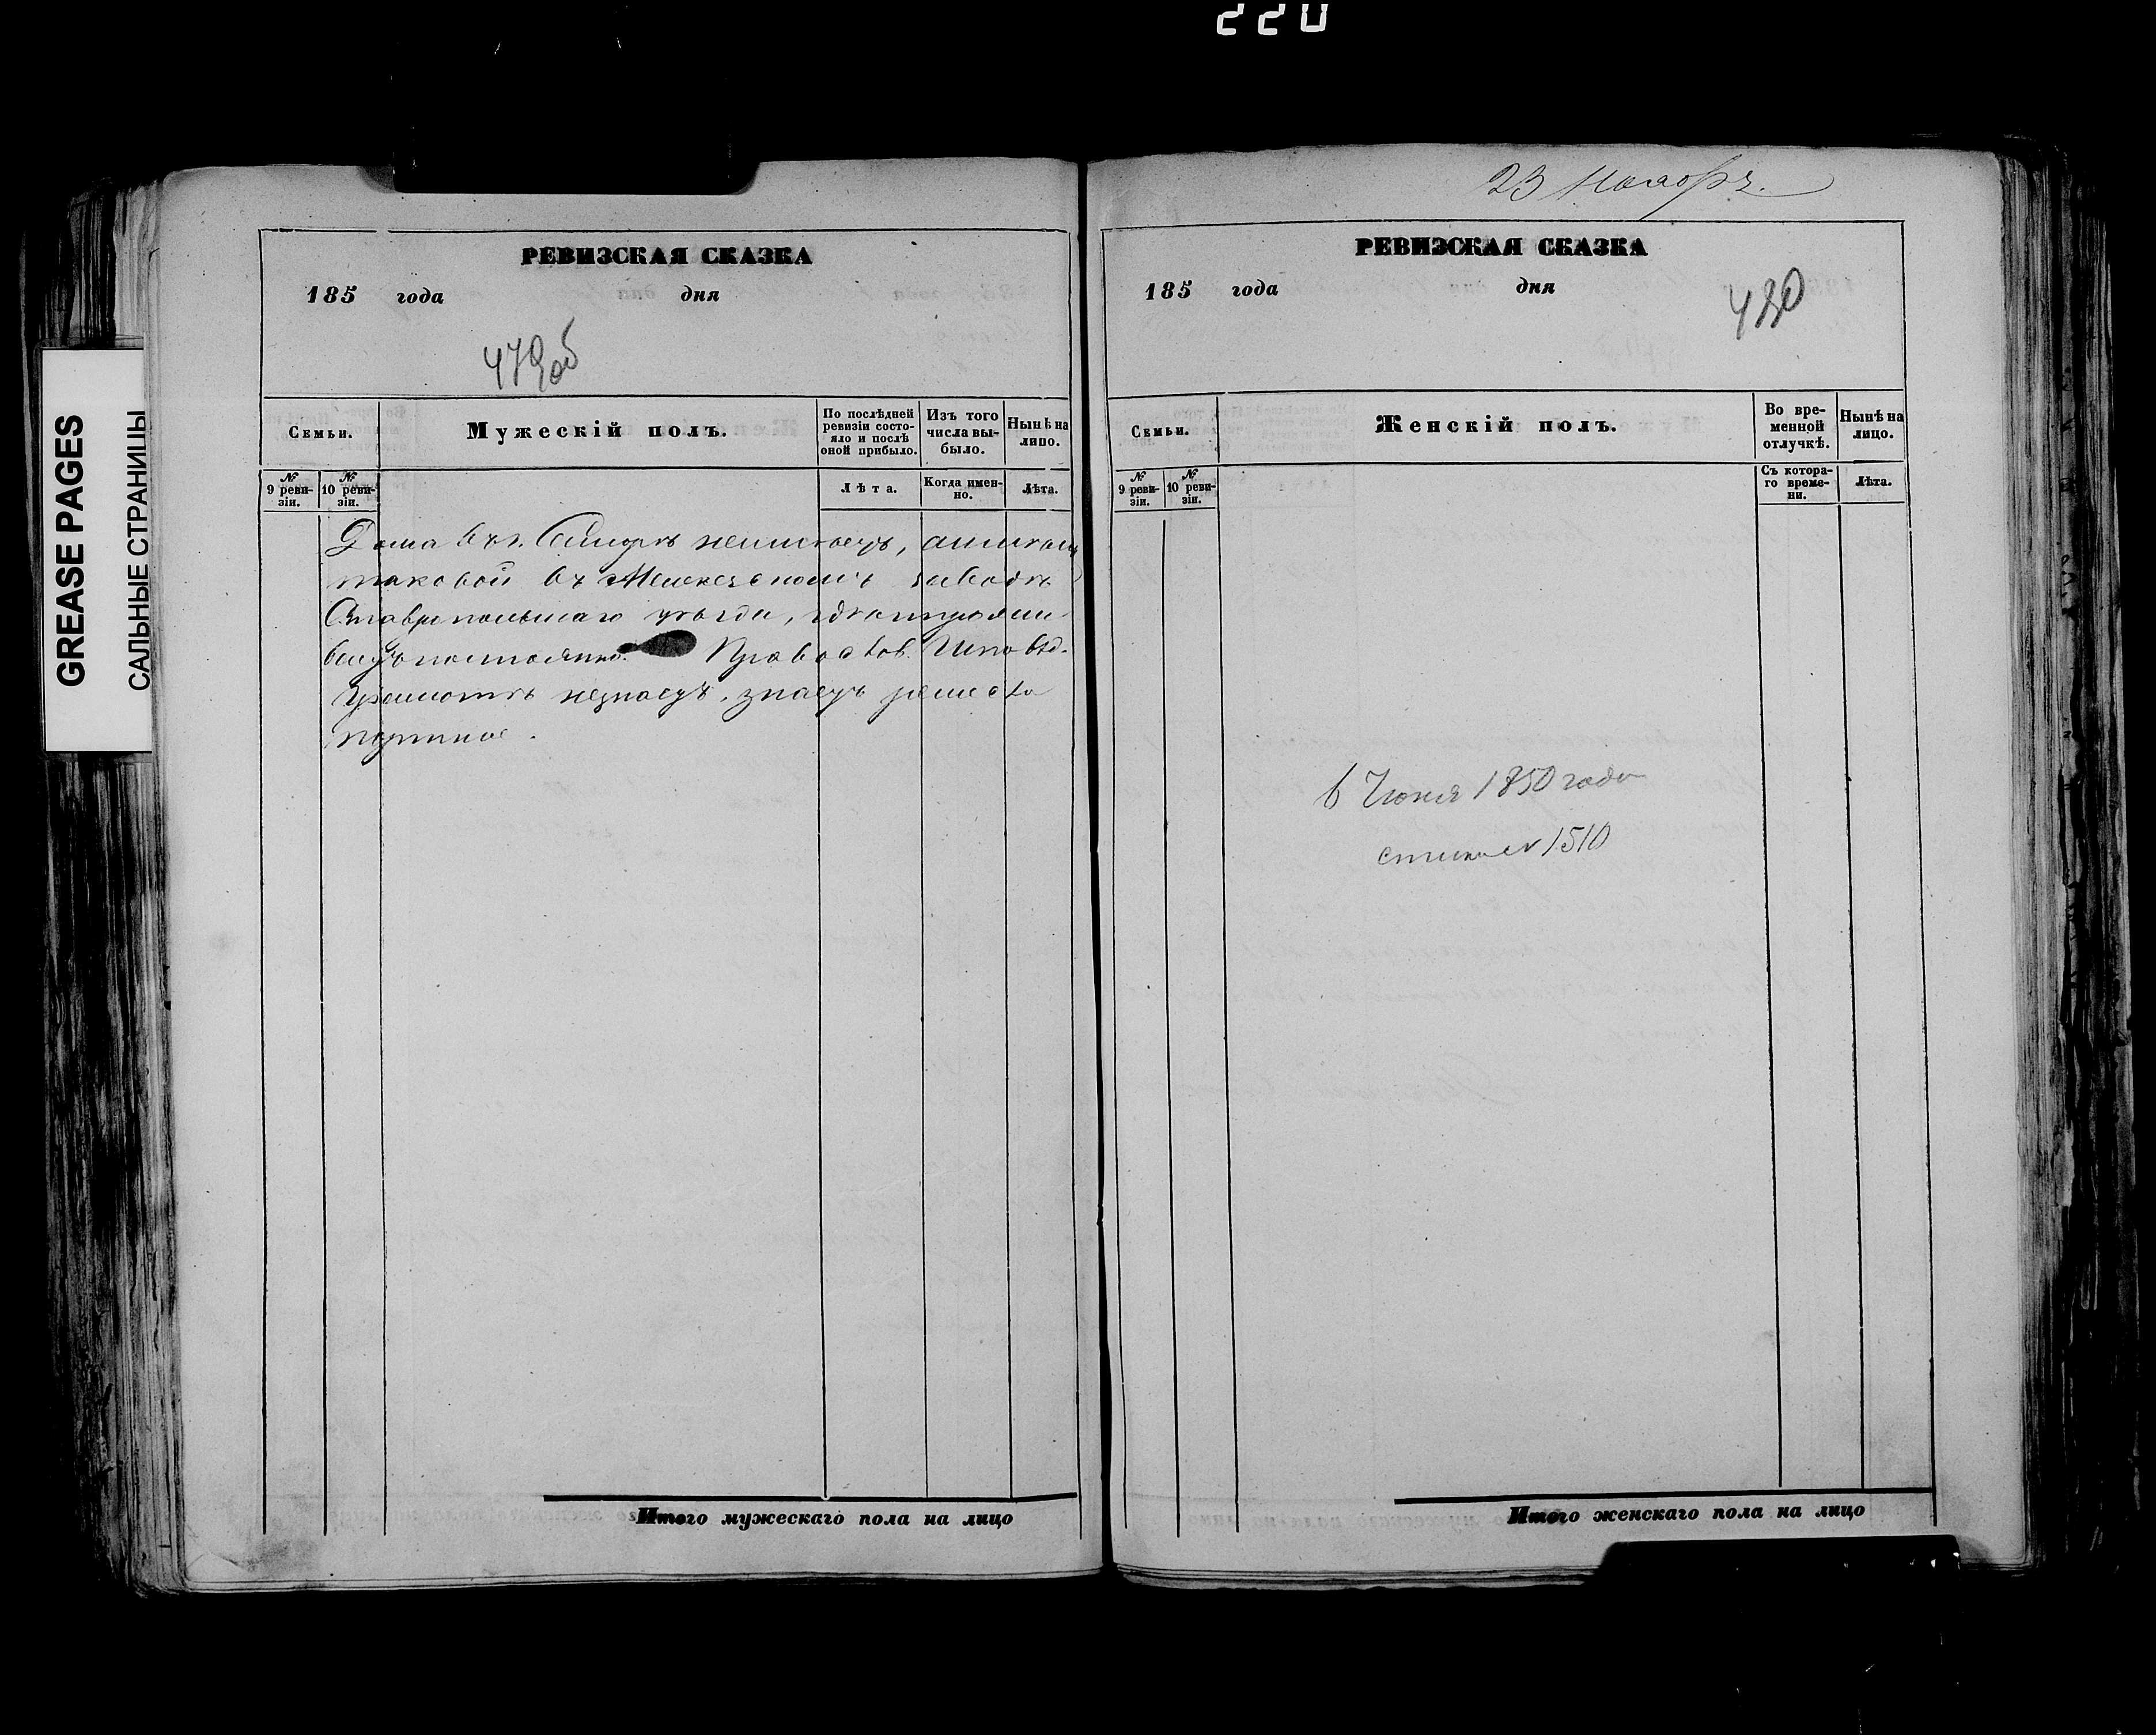 220
GREASE PAGES
САЛЬНЫЕ СТРАНИЦЫ
РЕВИЗСКАЯ СКАЗКА
185 года дня
479об
Семьи.
Мужескій полъ.
По послѣдней ревизіи состояло и послѣ оной прибыло.
Изъ того числа выбыло.
Нынѣ на лицо.
№ 9 ревизіи.
№ 10 ревизіи.
Лѣта.
Когда именно.
Лѣта.
Дома въ г. Самарѣ неимѣетъ, а имѣетъ
таковой въ Мелекесскомъ заводѣ
Ставропольскаго уѣзда, гдѣ и прожи-
ваетъ постоянно. Православ. Исповѣд.
Грамотѣ незнаетъ, знаетъ ремесло
портное.
Итого мужескаго пола на лицо
23 Ноябр.
РЕВИЗСКАЯ СКАЗКА
185 года дня
480
Семьи.
Женскій полъ.
Во временной отлучкѣ.
Нынѣ на лицо.
№ 9 ревизіи.
№ 10 ревизіи.
Съ котораго времени.
Лѣта.
6 Июня 1850 года
1510
Итого женскаго пола на лицо